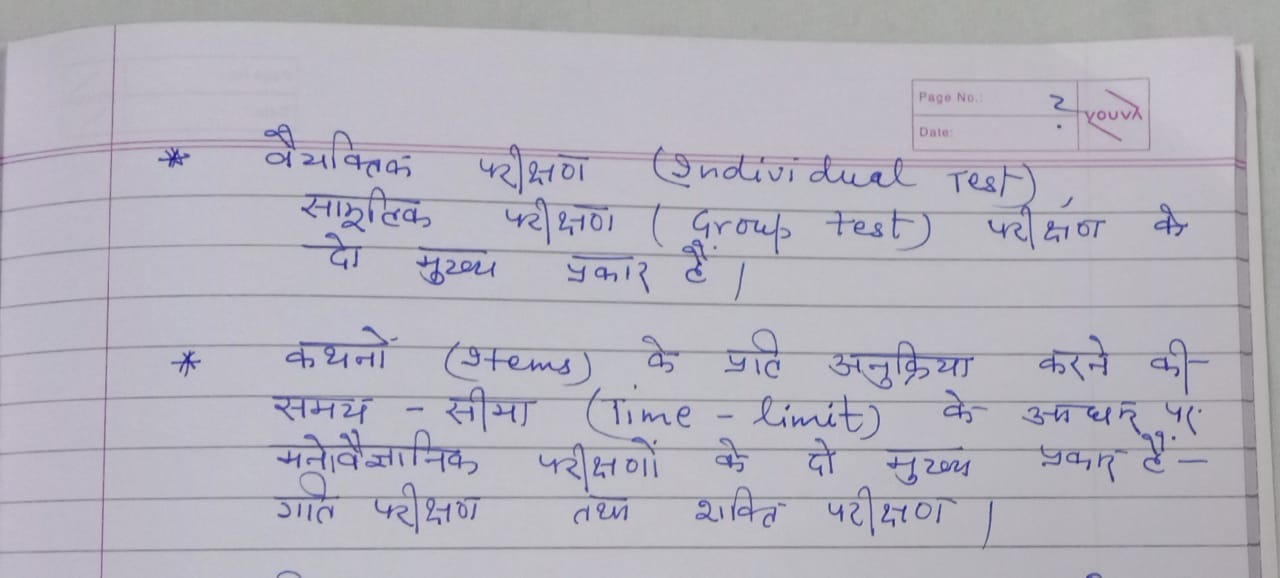 Page No.: 2
Date:
youva
* वैयक्तिक परीक्षण (Individual Test),
सामूहिक परीक्षण (Group test) परीक्षण के
दो मुख्य प्रकार हैं।
* कथनों (Items) के प्रति अनुक्रिया करने की
समय - सीमा (Time - limit) के आधार पर
मनोवैज्ञानिक परीक्षणों के दो मुख्य प्रकार हैं -
गति परीक्षण तथा शक्ति परीक्षण।